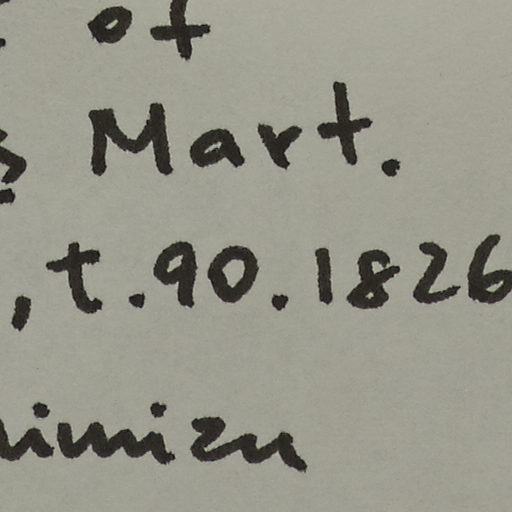 of
Mart.
, t. 90. 1826
himizu